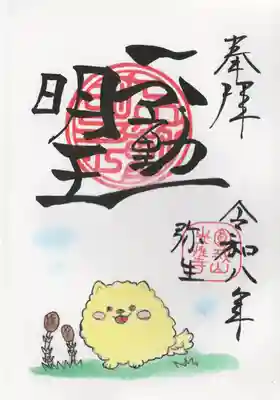 奉拝
令和八年
弥生
不動
明王